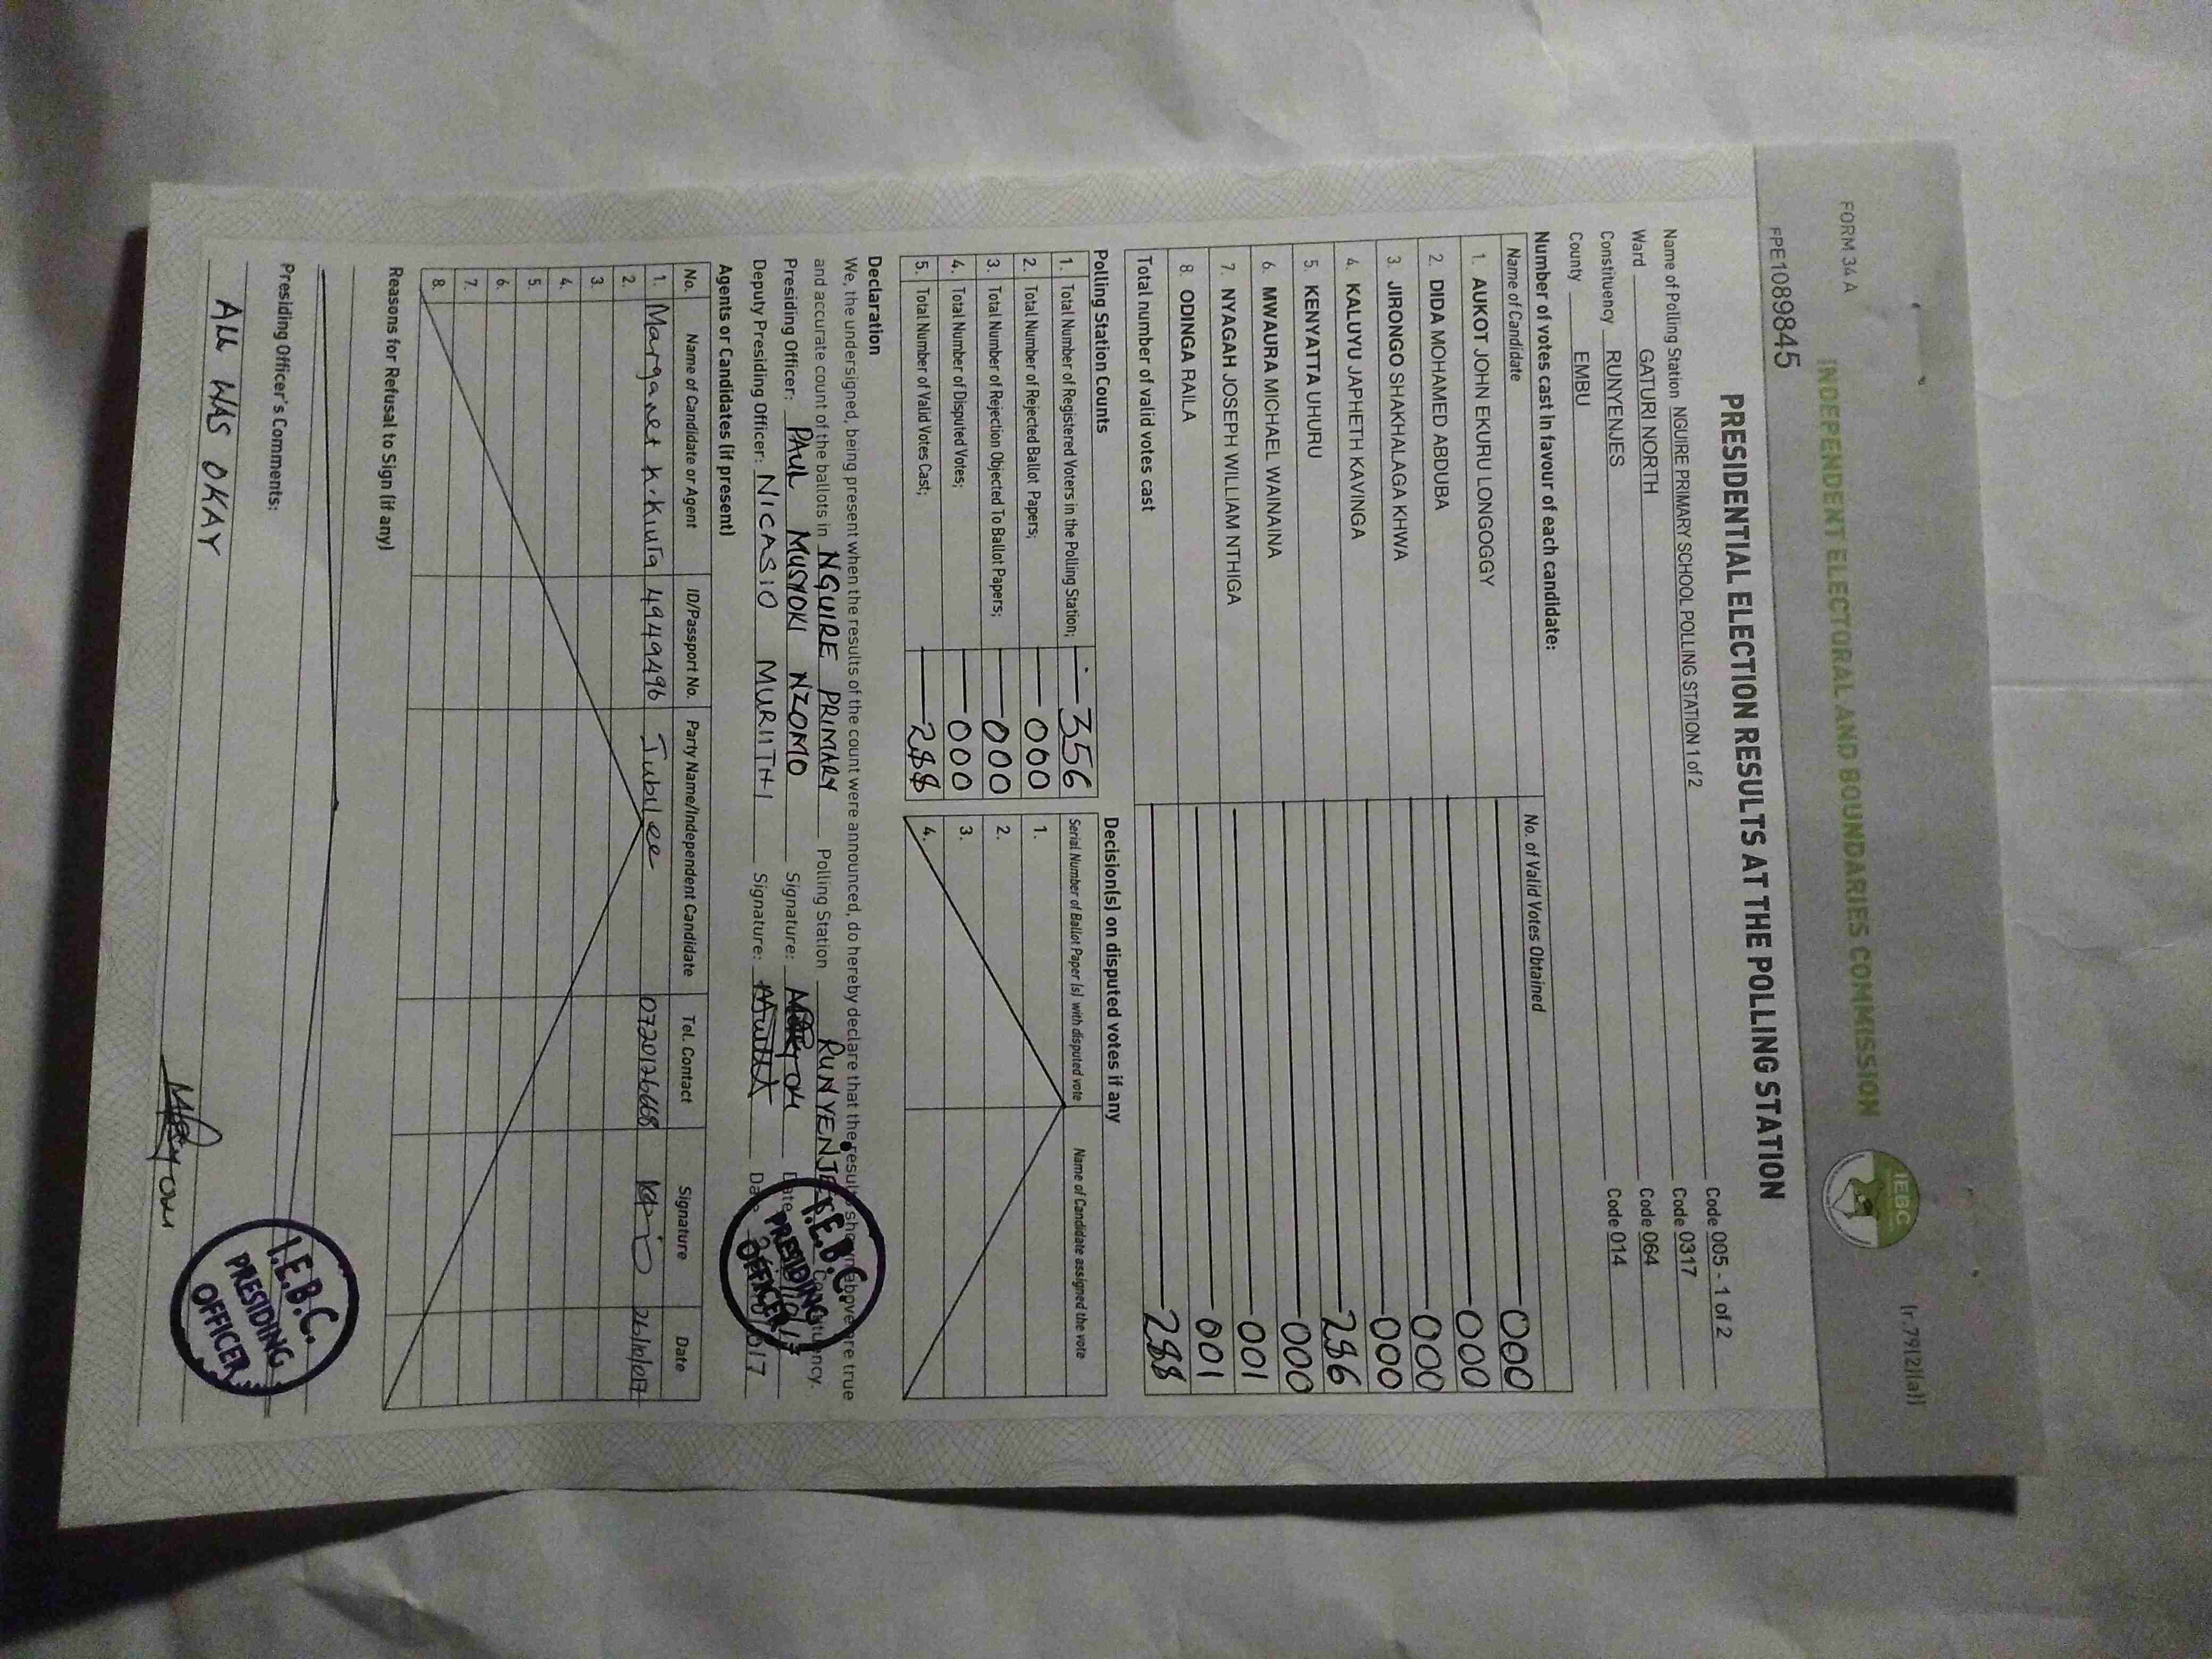 FORM 34A
(r.79(2)(a))
INDEPENDENT ELECTORAL AND BOUNDARIES COMMISSION
IEBC
FPE1089845
PRESIDENTIAL ELECTION RESULTS AT THE POLLING STATION
Name of Polling Station NGUIRE PRIMARY SCHOOL POLLING STATION 1 of 2 Code 005 - 1 of 2
Ward GATURI NORTH Code 0317
Constituency RUNYENJES Code 064
County EMBU Code 014
Number of votes cast in favour of each candidate:
Name of Candidate No. of Valid Votes Obtained
1. AUKOT JOHN EKURU LONGOGGY 000
2. DIDA MOHAMED ABDUBA 000
3. JIRONGO SHAKHALAGA KHWA 000
4. KALUYU JAPHETH KAVINGA 000
5. KENYATTA UHURU 286
6. MWAURA MICHAEL WAINAINA 000
7. NYAGAH JOSEPH WILLIAM NTHIGA 001
8. ODINGA RAILA 001
Total number of valid votes cast 288
Polling Station Counts
1. Total Number of Registered Voters in the Polling Station; 356
2. Total Number of Rejected Ballot Papers; 000
3. Total Number of Rejection Objected To Ballot Papers; 000
4. Total Number of Disputed Votes; 000
5. Total Number of Valid Votes Cast; 288
Decision(s) on disputed votes if any
Serial Number of Ballot Paper (s) with disputed vote Name of Candidate assigned the vote
1.
2.
3.
4.
Declaration
We, the undersigned, being present when the results of the count were announced, do hereby declare that the results shown above are true
and accurate count of the ballots in NGUIRE PRIMARY Polling Station RUNYENJES Constituency.
Presiding Officer: PAUL MUSYOKI NZOMO Signature: Date
Deputy Presiding Officer: NICASIO MURIITHI Signature: Date
I.E.B.C.
PRESIDING
OFFICER
Agents or Candidates (if present)
No. Name of Candidate or Agent ID/Passport No. Party Name/Independent Candidate Tel. Contact Signature Date
1. Margaret K. Kiura 4949496 Jubilee 0720126668 26/10/017
2.
3.
4.
5.
6.
7.
8.
Reasons for Refusal to Sign (if any)
Presiding Officer's Comments:
ALL WAS OKAY
I.E.B.C.
PRESIDING
OFFICER